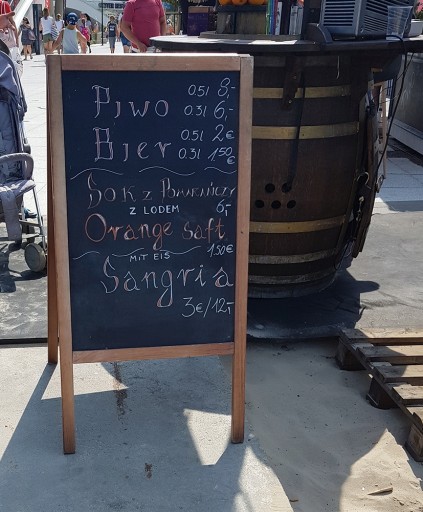 Piwo 0.5l 8,-
0.3l 6,-
Bier 0.5l 2€
0.3l 1,50€
Sok z Pomarańczy
Z LODEM 6,-
Orange saft
MIT EIS 1.50€
Sangria
3€/12,-